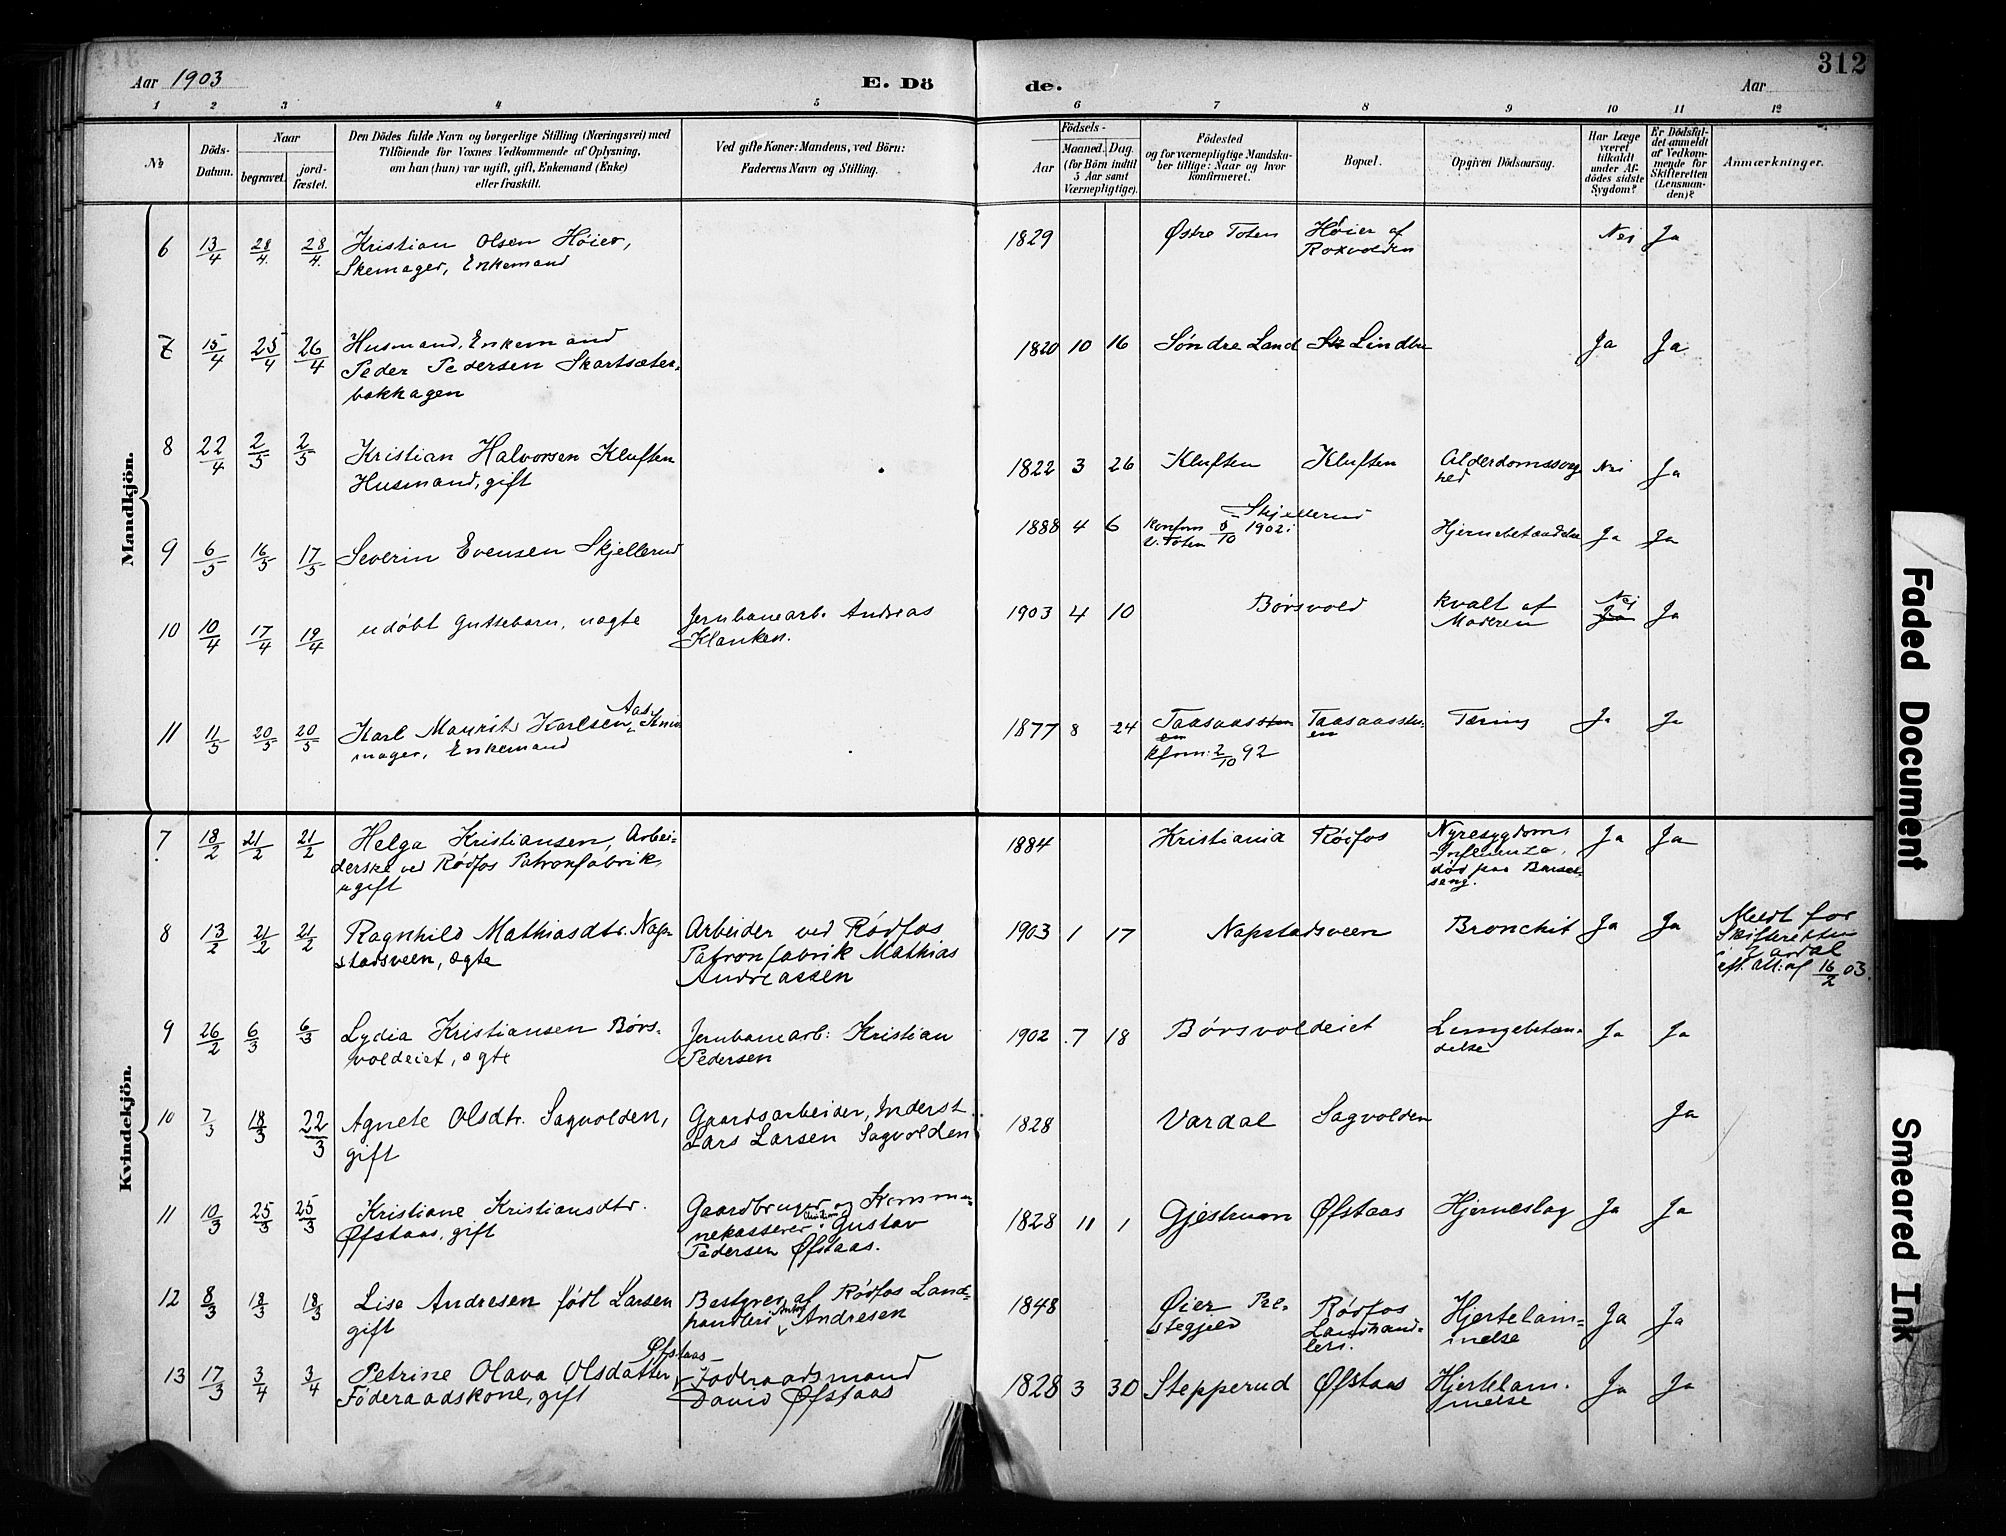 Aar 1903
E. Dö
de.
Aar
312
1 2 3 4 5 6 7 8 9 10 11 12
No
Döds-
Datum.
Naar
begravet.
jord-
fæstet.
Den Dödes fulde Navn og borgerlige Stilling (Næringsvei) med
Tilföiende for Voxnes Vedkommende af Oplysning,
om han (hun) var ugift, gift, Enkemand (Enke)
eller fraskilt.
Ved gifte Koner: Mandens, ved Börn:
Faderens Navn og Stilling.
Födsels-
Aar
Maaned. Dag.
(for Börn indtil
5 Aar samt
Værnepligtige).
Födested
og for værnepligtige Mandska-
ber tillige: Naar og hvor
konfirmeret.
Bopæl.
Opgiven Dödsaarsag.
Har Læge
været
tilkaldt
under Af-
dödes sidste
Sygdom?
Er Dødsfal-
det anmeldt
af Vedkom-
mende for
Skifteretten
(Lensman-
den)?
Anmærkninger.
Mandkjön.
6 13/4 28/4 28/4 Kristian Olsen Höier,
Skomager, Enkemand
1829 Østre Toten Höier af
Roxvolden
Nei Ja
7 15/4 25/4 26/4 Husmand, Enkemand
Peder Pedersen Skartsæter-
bakhagen
1820 10 16 Søndre Land Sk Lindbu Ja Ja
8 22/4 2/5 2/5 Kristian Halvorsen Kluften
Husmand, gift
1822 3 26 Kluften Kluften Alderdomssvag
hed
Nei Ja
9 6/5 16/5 17/5 Severin Evensen Skjellerud
1888 4 6 Skjellerud
Konfirm 5/10 1902 i
V. Toten
Hjernebetændelse Ja Ja
10 10/4 17/4 19/4 udöbt Guttebarn, uægte
Jernbanearb. Andreas
Klanken.
1903 4 10 Börsvold kvalt af
Moderen
Nej
Ja
Ja
11 11/5 20/5 20/5 Karl Maurits Karlsen Aas,
mager, Enkemand
1877 8 24 Taasaassten
en
Taasaassten
en
kfrm: 2/10 92
Tæring Ja Ja
Kvindekjön.
7 18/2 21/2 21/2 Helga Kristiansen, Arbei-
derske ved Rödfos Patronfabrik,
ugift
1884 Kristiania Rödfos Nyresygdom,
Influenza,
död paa Barsel-
seng.
Ja Ja
8 13/2 21/2 21/2 Ragnhild Mathiasdtr. Nap-
stadsveen, ægte
Arbeider ved Rödfos
Patronfabrik Mathias
Andreassen
1903 1 17 Napstadsveen Bronchit Ja Ja
Meldt for
Skifteretten
i Vardal
eft. Att: af 16/2 03.
9 26/2 6/3 6/3 Lydia Kristiansen Börs-
voldeiet, ægte
Jernbanearb: Kristian
Pedersen
1902 7 18 Börsvoldeiet Lungebetæn-
delse
Ja Ja
10 7/3 18/3 22/3 Agnete Olsdtr. Sagvolden,
gift
Gaardsarbeider, Inderst
Lars Larsen Sagvolden
1828 Vardal Sagvolden Ja
11 10/3 25/3 25/3 Kristiane Kristiansdtr.
Øfstaas, gift
Gaardbruger og Kommu-
nekasserer Gustav
Pedersen Øfstaas.
1828 11 1 Gjestrum Øfstaas Hjerneslag Ja Ja
12 8/3 18/3 18/3 Lise Andresen födt Larsen
gift
Bestyrer af Rödfos Land-
handleri Anton Andresen
1848 Øier Præ-
stegjeld
Rödfos
Landhand-
leri.
Hjertelam-
melse
Ja Ja
13 17/3 3/4 3/4 Petrine Olava Olsdatter Øfstaas
Föderaadskone, gift
Föderaadsmand
David Øfstaas
1828 3 30 Stepperud Øfstaas Hjertelam-
melse
Ja Ja
Faded Document
Smeared Ink